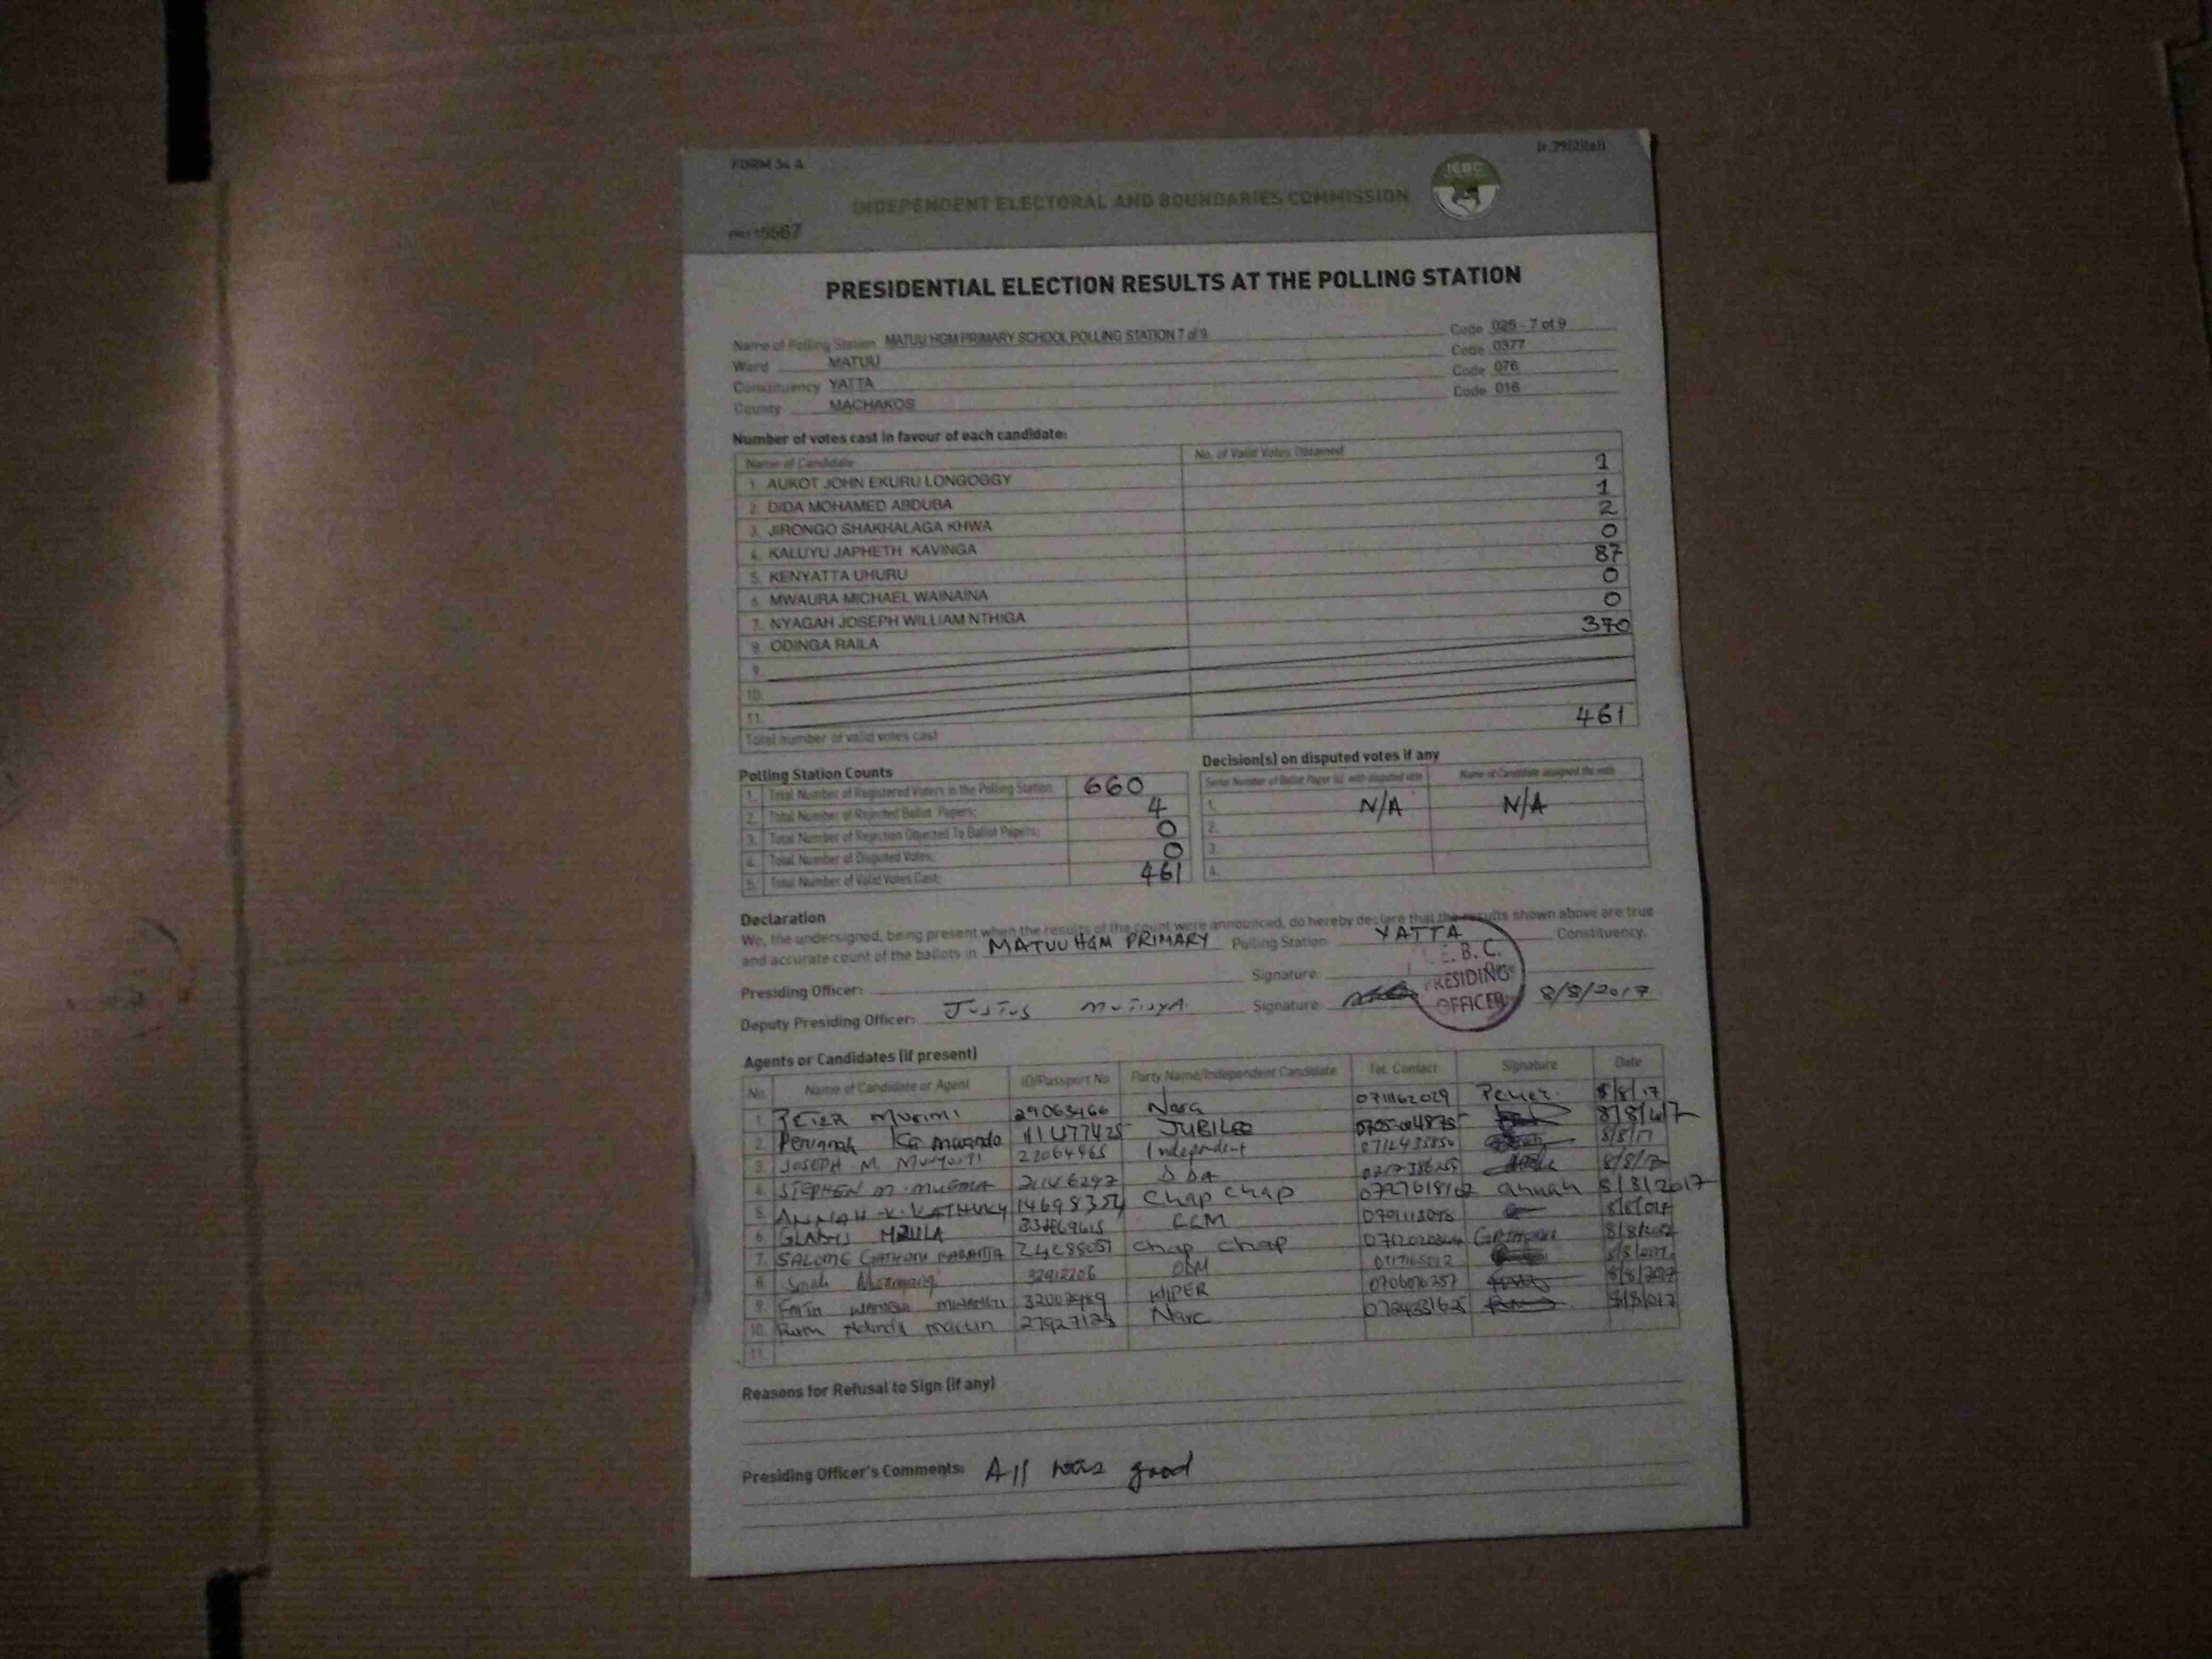 FORM 34 A
(r.79(2)(a))
IEBC
INDEPENDENT ELECTORAL AND BOUNDARIES COMMISSION
PRESIDENTIAL ELECTION RESULTS AT THE POLLING STATION
Name of Polling Station MATUU HGM PRIMARY SCHOOL POLLING STATION 7 of 9 Code 025 - 7 of 9
Ward MATUU Code 0377
Constituency YATTA Code 076
County MACHAKOS Code 016
Number of votes cast in favour of each candidate:
Name of Candidate No. of Valid Votes Obtained
1. AUKOT JOHN EKURU LONGOGGY 1
2. DIDA MOHAMED ABDUBA 1
3. JIRONGO SHAKHALAGA KHWA 2
4. KALUYU JAPHETH KAVINGA 0
5. KENYATTA UHURU 87
6. MWAURA MICHAEL WAINAINA 0
7. NYAGAH JOSEPH WILLIAM NTHIGA 0
8. ODINGA RAILA 370
9.
10.
11.
Total number of valid votes cast 461
Polling Station Counts
1. Total Number of Registered Voters in the Polling Station; 660
2. Total Number of Rejected Ballot Papers; 4
3. Total Number of Rejection Objected To Ballot Papers; 0
4. Total Number of Disputed Votes; 0
5. Total Number of Valid Votes Cast; 461
Decision(s) on disputed votes if any
Serial Number of Ballot Paper (s) with disputed vote Name of Candidate assigned the vote
1. N/A N/A
2.
3.
4.
Declaration
We, the undersigned, being present when the results of the count were announced, do hereby declare that the results shown above are true
and accurate count of the ballots in MATUU HGM PRIMARY Polling Station YATTA Constituency.
Presiding Officer: Signature
Deputy Presiding Officer: JUSTUS MUTISYA Signature 8/8/2017
PRESIDING
OFFICER
Agents or Candidates (if present)
No. Name of Candidate or Agent ID/Passport No Party Name/Independent Candidate Tel. Contact Signature Date
1. PETER MURIMI 29063466 Narc 0711162029 8/8/17
2. JUBILEE
3. JOSEPH M. 22064465 Independent 8/8/17
4. STEPHEN M. 21146297 8/8/17
5. ANNAH K. 14698354 Chap Chap annah 8/8/2017
6. GLADYS CCM
7. SALOME Chap Chap
8. 32912206 ODM
9. WIPER 0706076257
10. martin Narc
11.
Reasons for Refusal to Sign (if any)
Presiding Officer's Comments: All was good